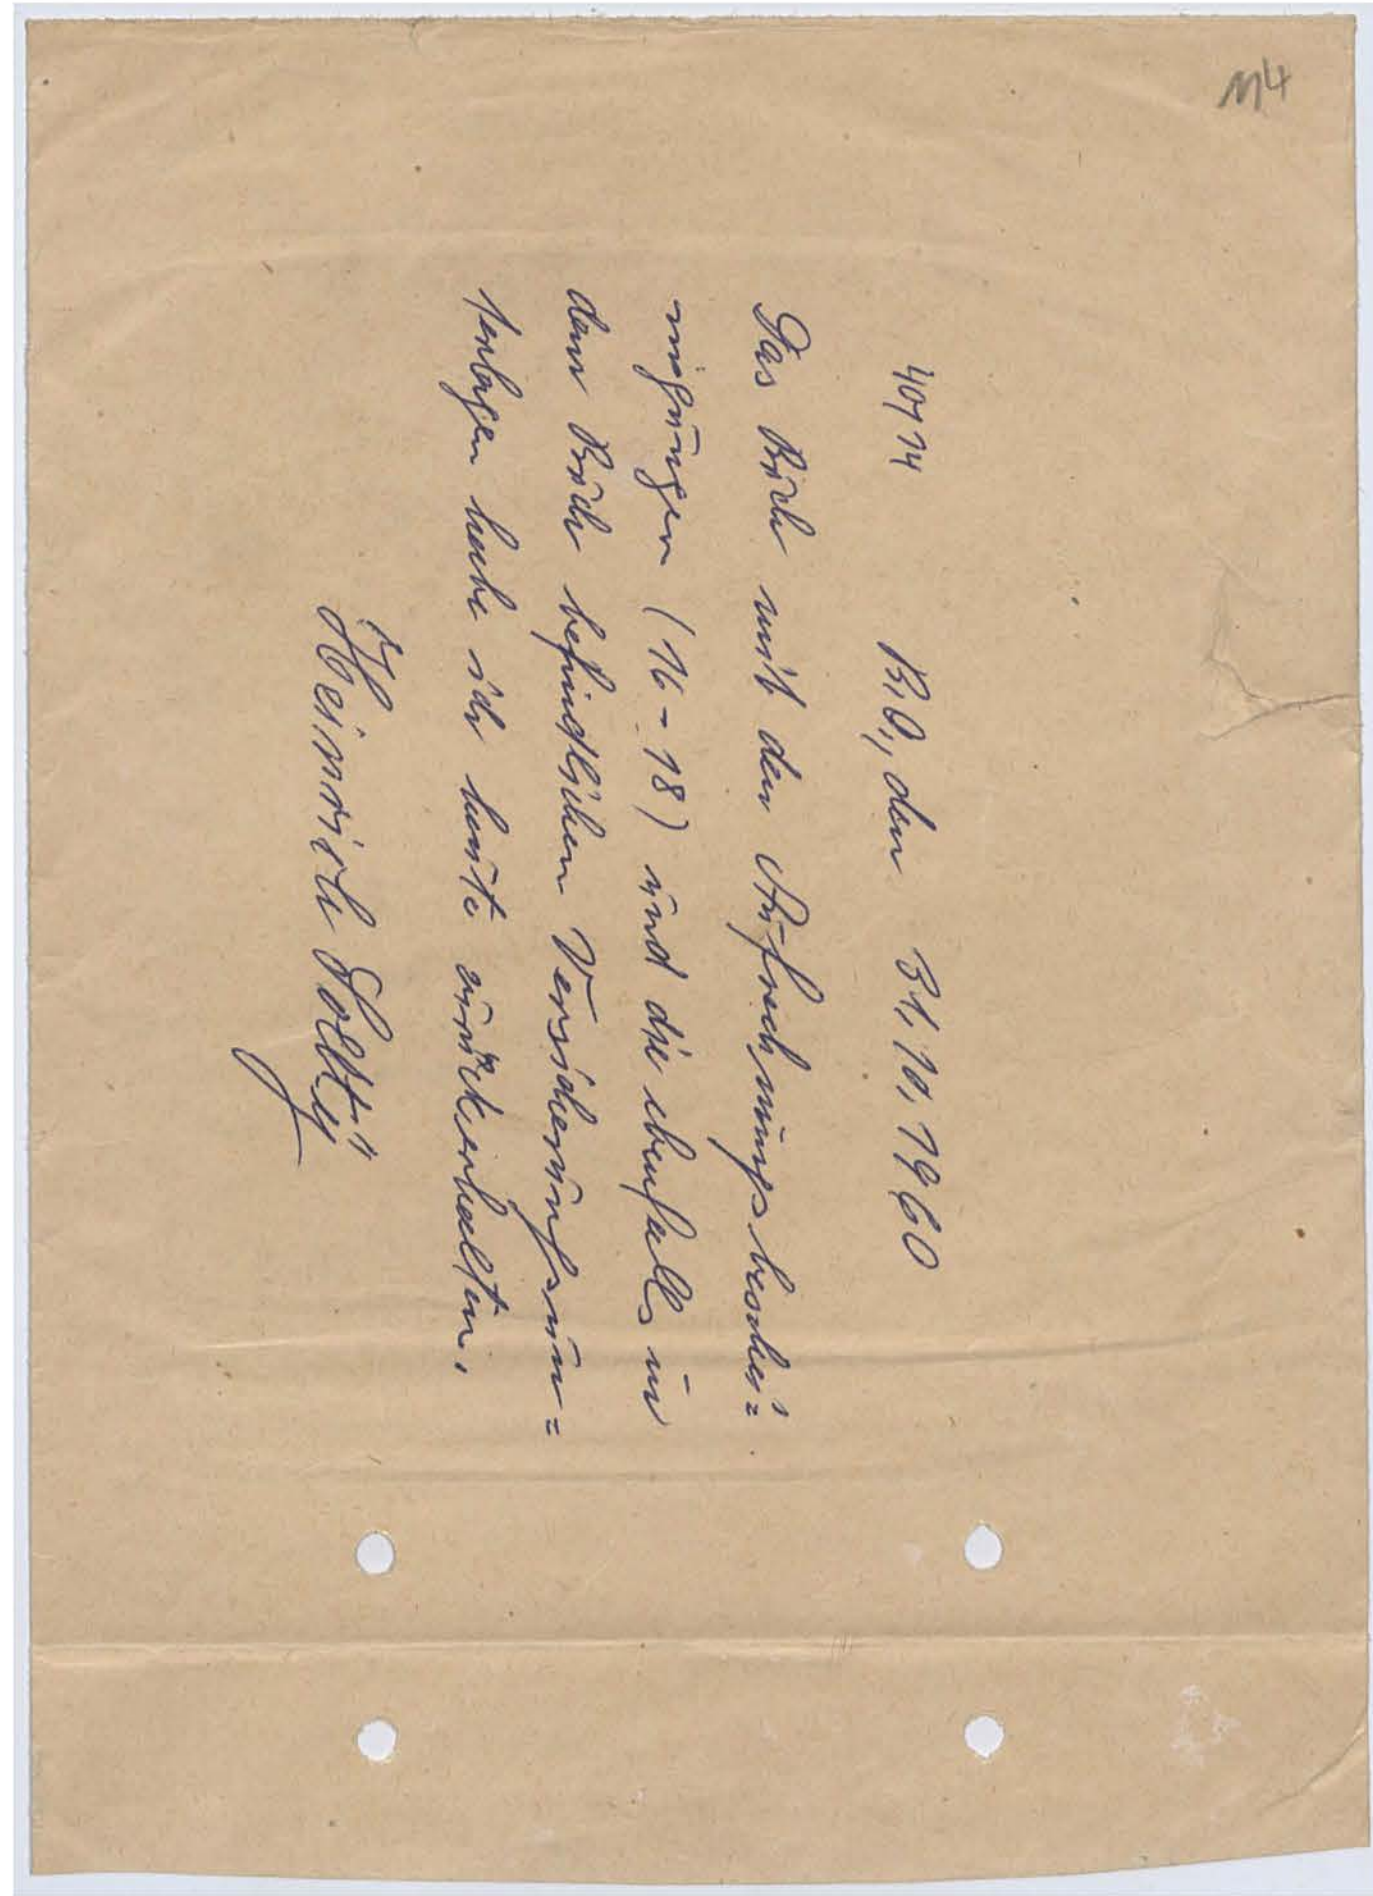 114
40/14 B.O., den 31.10.1960
Das Buch mit den Aufrechnungsbeschei=
nigungen (16-18) und die ebenfalls in
dem Buch befindlichen Versicherungsun=
terlagen habe ich heute zurückerhalten.
Heinrich